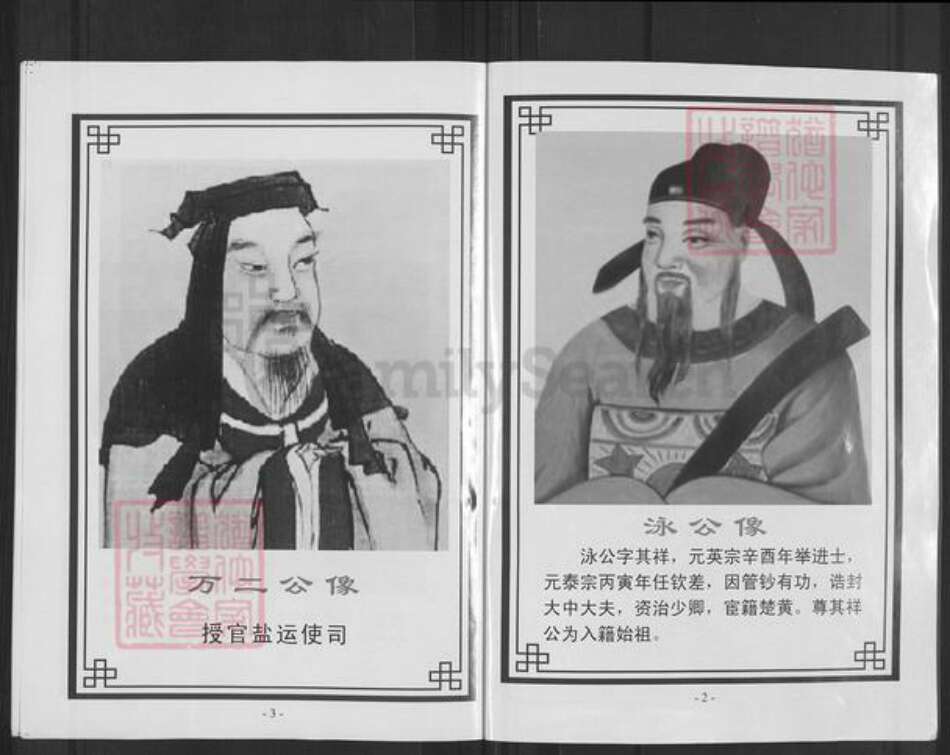 泳公像
泳公字其祥，元英宗辛酉年举进士，
元泰宗丙寅年任钦差，因管钞有功，诰封
大中大夫，资治少卿，宦籍楚黄。尊其祥
公为入籍始祖。
-2-
万二公像
授官盐运使司
-3-
FamilySearch